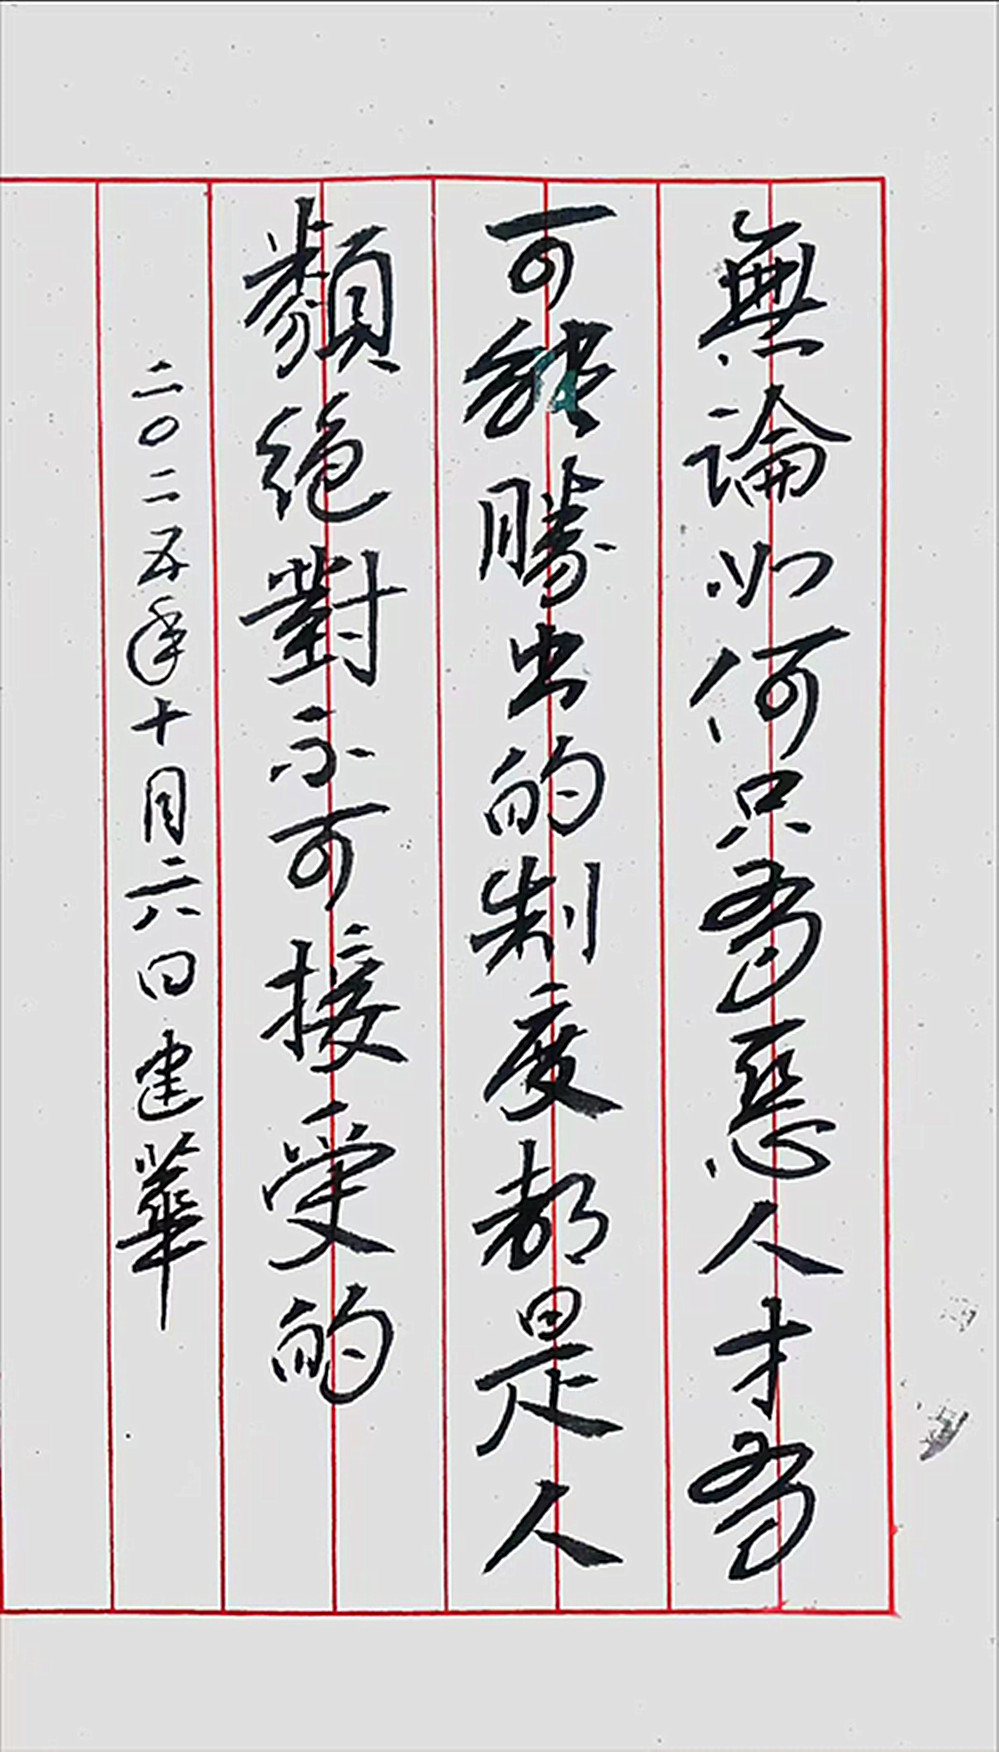 無論如何只有惡人才有
可能勝出的制度都是人
類絕對不可接受的
二〇二五年十月二六日建華